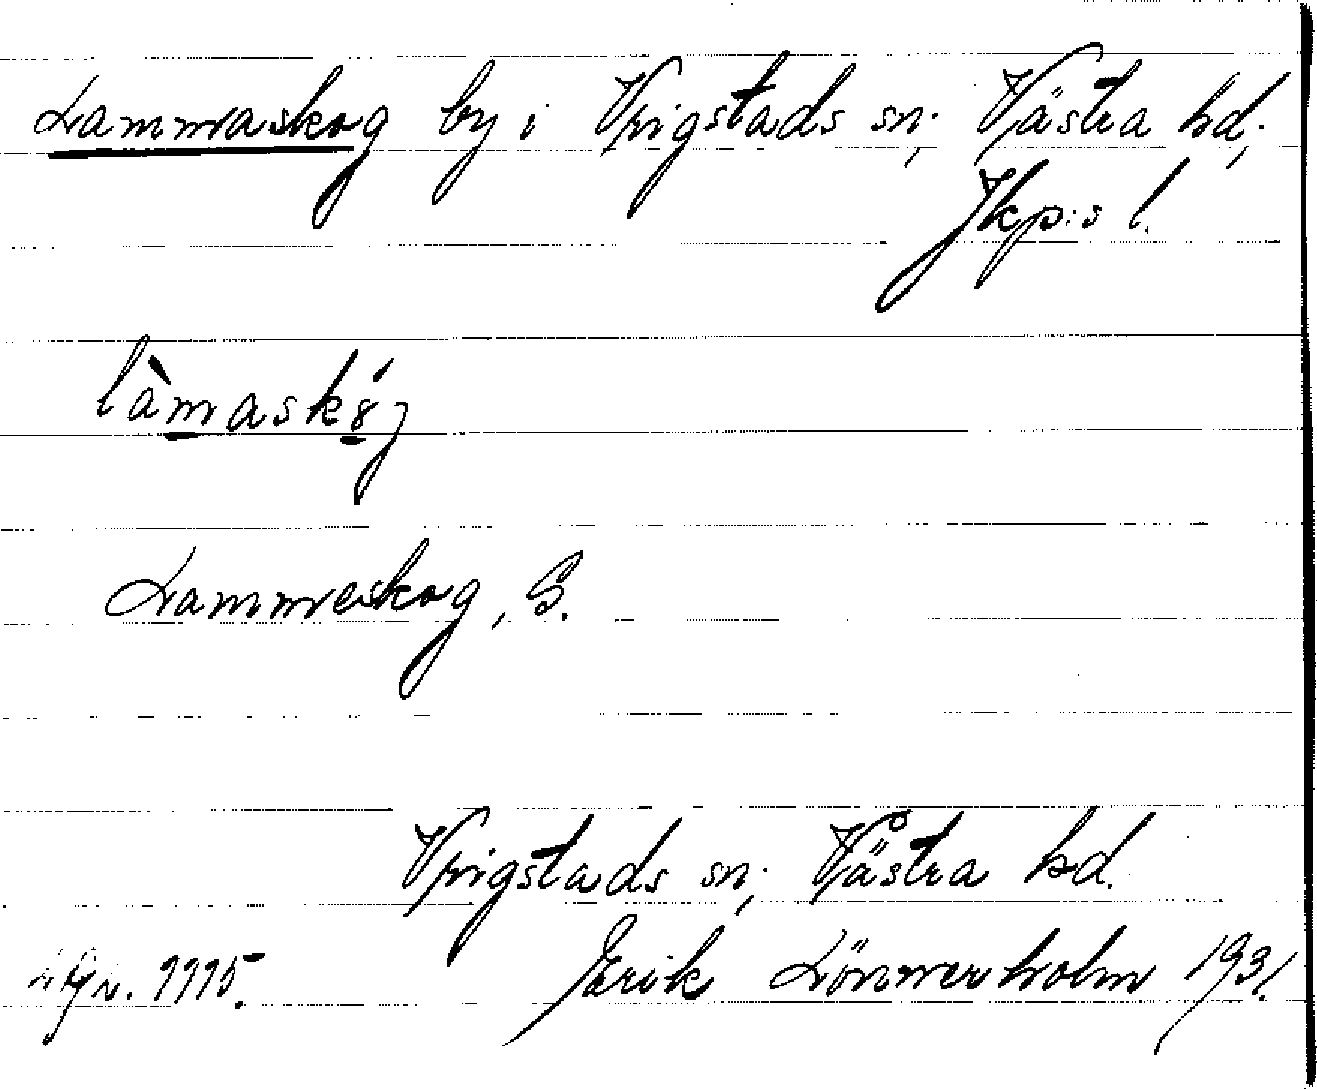 Lammaskog by i Vrigstads sn, Västra hd,
Jkp:s l.
Lammeskog, G.
Vrigstads sn, Västra hd.
1115. Erik Lönnerholm 1931.